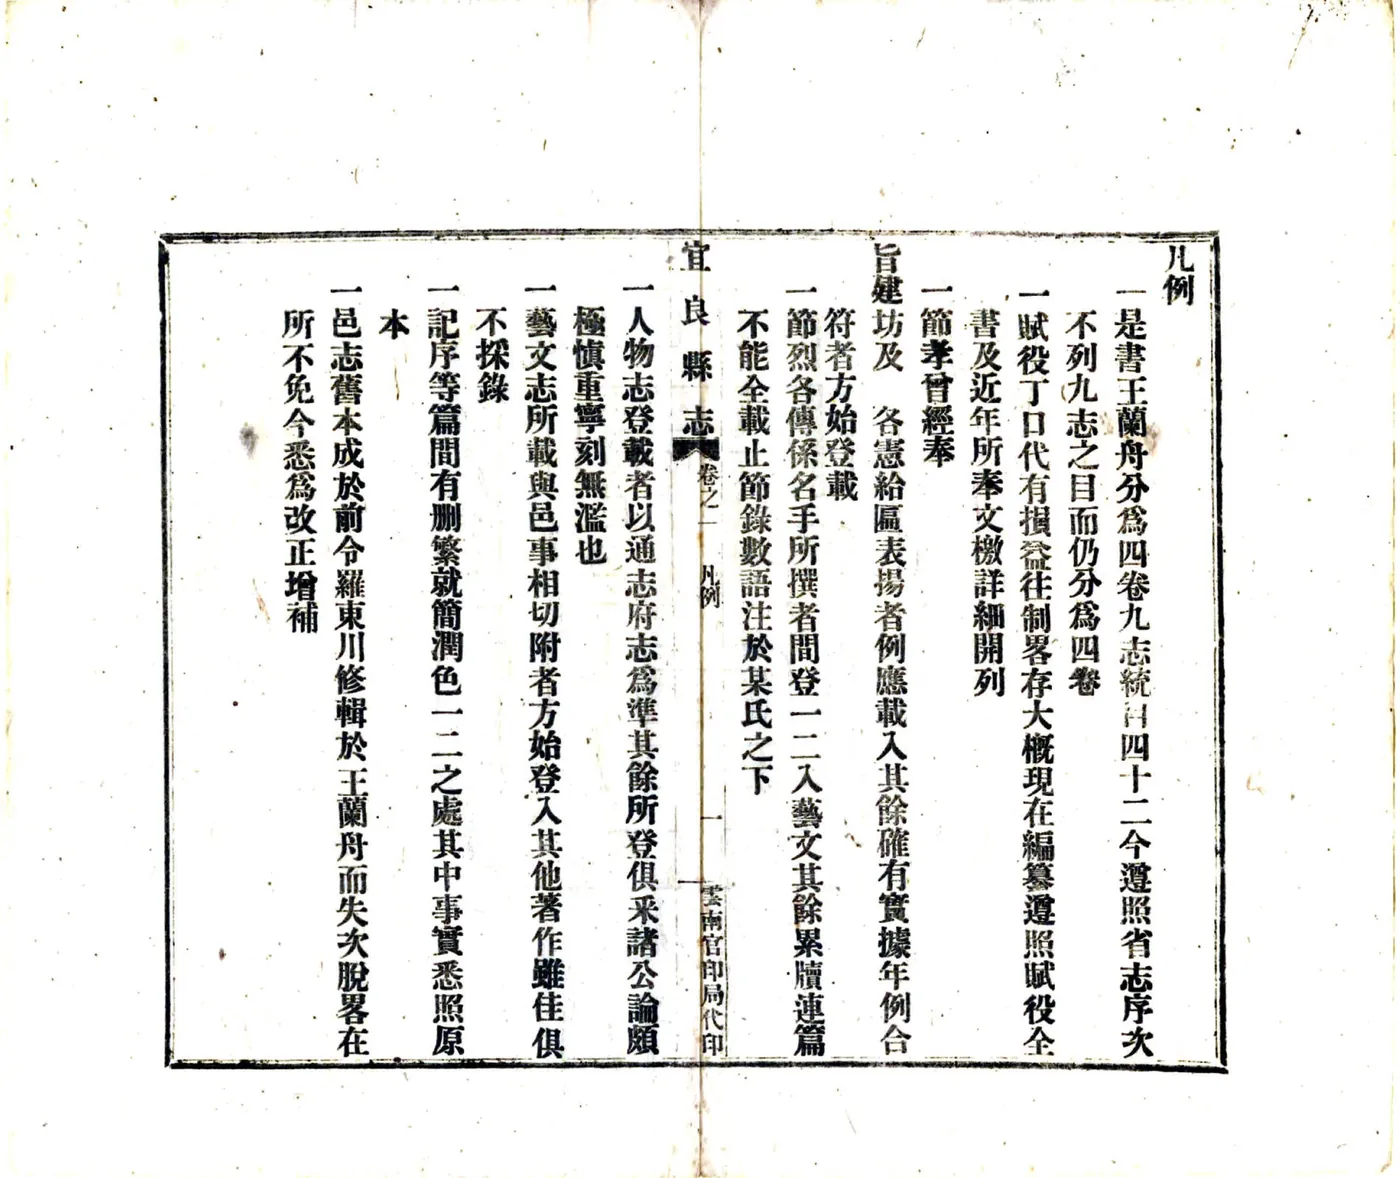 凡例
一是書王蘭舟分爲四卷九志統目四十二今遵照省志序次
不列九志之目而仍分爲四卷
一賦役丁口代有損益往制畧存大槪現在編纂遵照賦役全
書及近年所奉文檄詳細開列
一節孝曾經奉
旨建坊及　各憲給匾表揚者例應載入其餘確有實據年例合
符者方始登載
一節烈各傳係名手所撰者間登一二入藝文其餘累牘連篇
不能全載止節錄數語注於某氏之下
宜良縣志
卷之一　凡例
一
雲南官印局代印
一人物志登載者以通志府志爲準其餘所登俱采諸公論頗
極愼重寧刻無濫也
一藝文志所載與邑事相切附者方始登入其他著作雖佳俱
不採錄
一記序等篇間有刪繁就簡潤色一二之處其中事實悉照原
本
一邑志舊本成於前令羅東川修輯於王蘭舟而失次脫畧在
所不免今悉爲改正增補